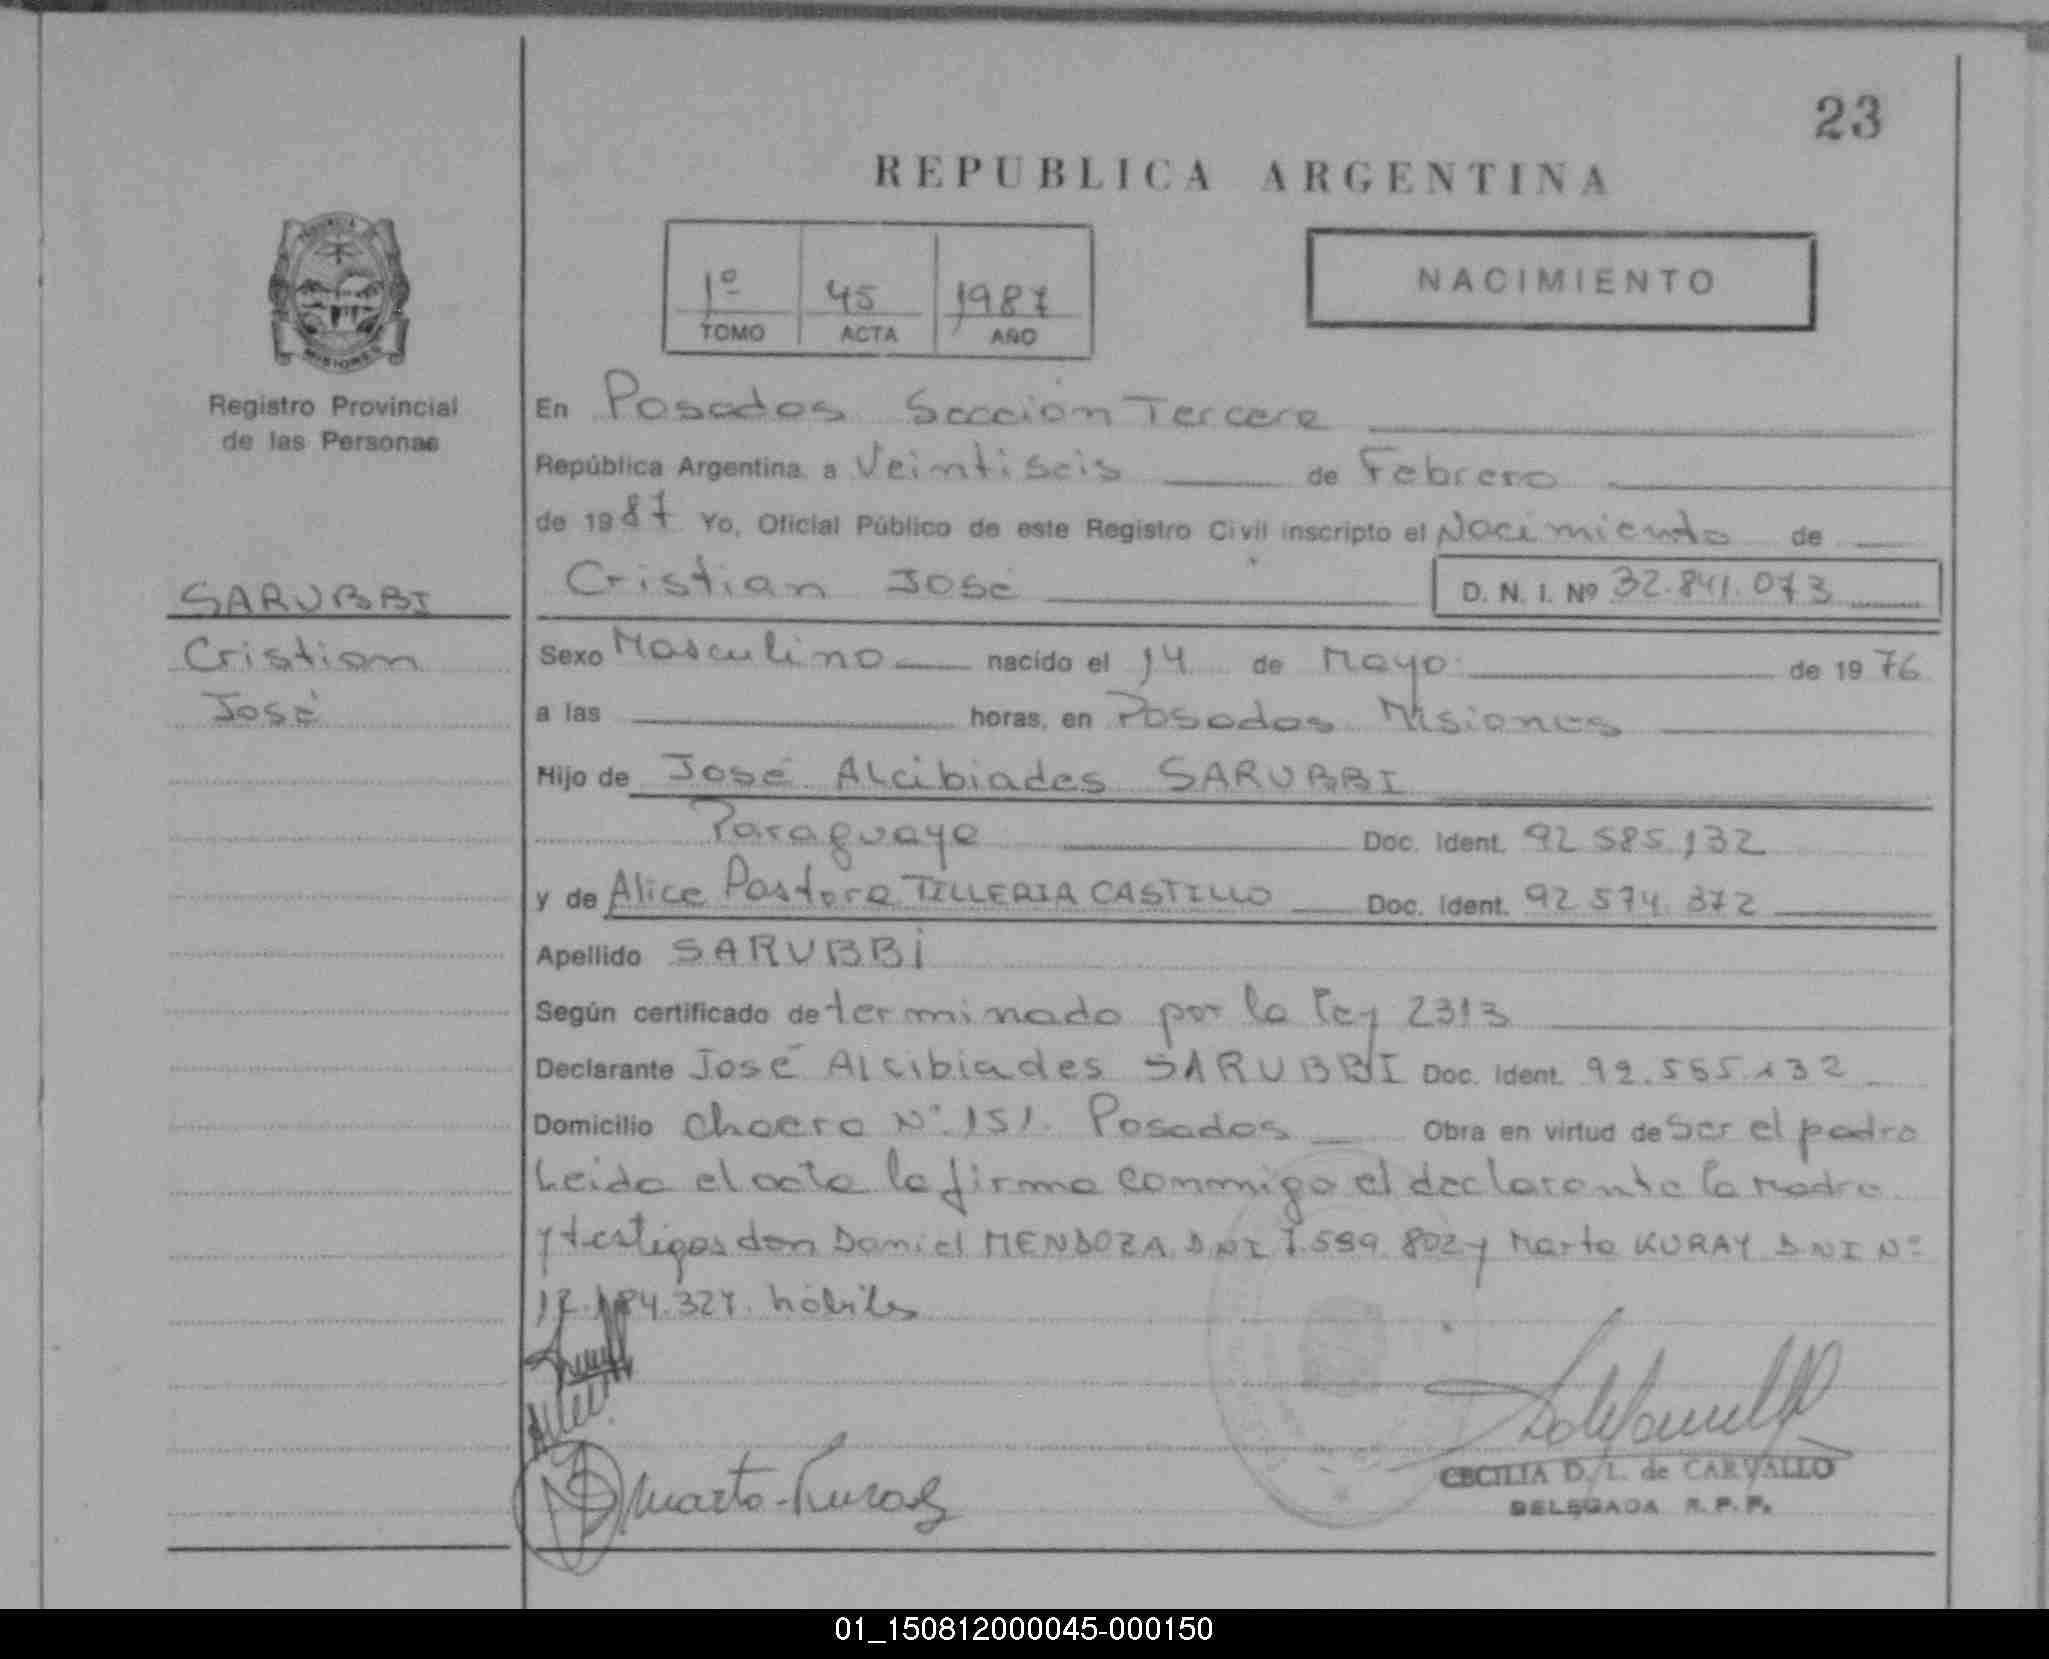 23
REPUBLICA ARGENTINA
1º 45 1987
TOMO ACTA AÑO
NACIMIENTO
MISIONES
Registro Provincial
de las Personas
SARUBBI
Cristian
José
En Posadas Sección Tercera
República Argentina a Veintiseis de Febrero
de 1987 Yo, Oficial Público de este Registro Civil inscripto el Nacimiento de
Cristian José D. N. I. Nº 32.841.073
Sexo Masculino nacido el 14 de Mayo de 1976
a las horas, en Posadas Misiones
Hijo de José Alcibiades SARUBBI
Paraguaya Doc. Ident. 92 585.132
y de Alice Pastora TILLERIA CASTILLO Doc. Ident. 92 574.372
Apellido SARUBBI
Según certificado determinado por la ley 2313
Declarante José Alcibiades SARUBBI Doc. Ident. 92.555.132
Domicilio chacra Nº 151. Posadas Obra en virtud de ser el padre
Leida el acta la firma conmigo el declarante la Madre
y testigos don Daniel MENDOZA DNI 7.599.802 y Marta KURAY DNI Nº
17.184.327. hábiles
Marta Kuray
CECILIA D. L. de CARVALLO
DELEGADA R. P. P.
01_150812000045-000150